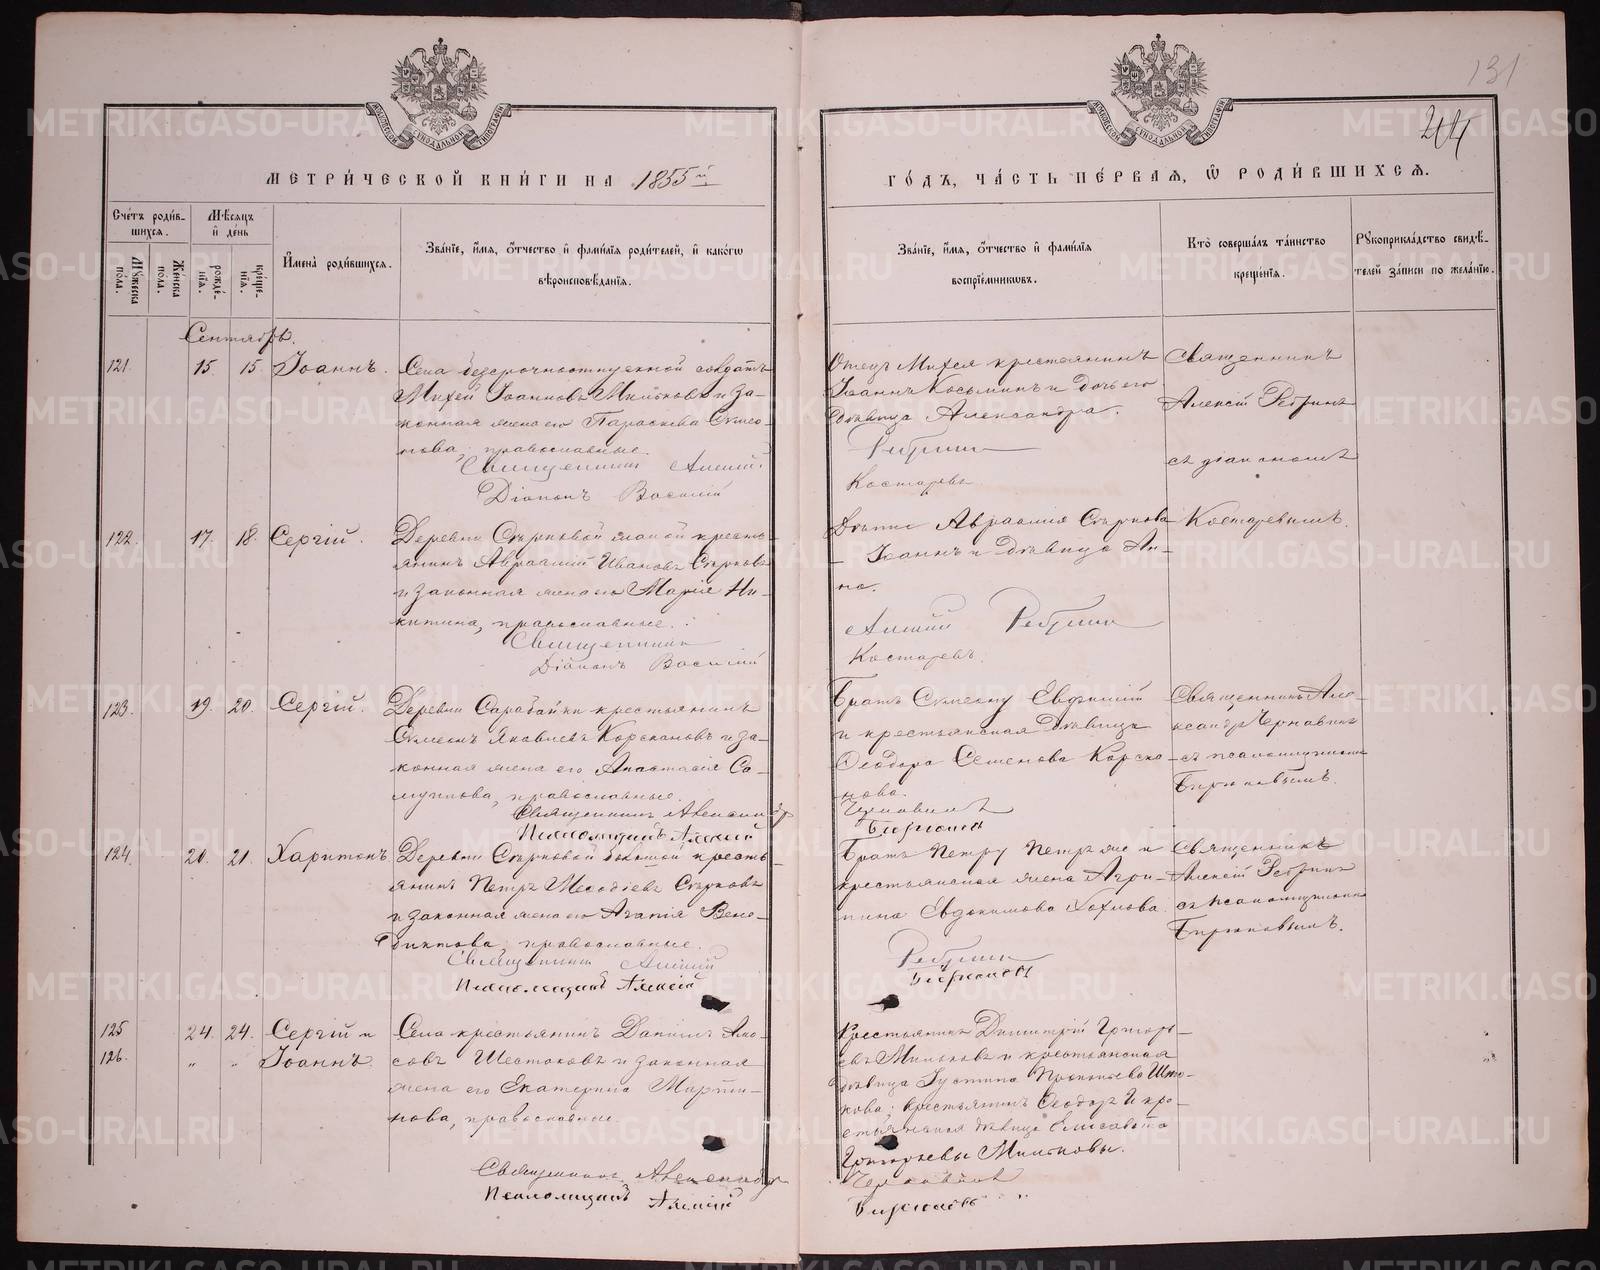 131
244
МЕТРИ́ЧЕСКОЙ КНИ́ГИ НА 1855й
ГО́ДЪ, ЧА́СТЬ ПЕ́РВАЯ, Ѡ РОДИ́ВШИХСЯ.
Сче́тъ роди́в-
шихся.
Мꙋ́жеска
по́ла.
Же́нска
по́ла.
Мѣ́сяцъ
и де́нь
рожде́-
нїя.
креще́-
нїя.
И҆мена̀ роди́вшихся.
Зва́нїе, и҆́мя, ѻ҆́тчество и҆ фами́лїя роди́телей, и҆ како́гѡ
вѣроисповѣ́данїя.
Зва́нїе, и҆́мя, ѻ҆́тчество и҆ фами́лїя
воспрїе́мникѡвъ.
Кто̀ соверша́лъ та́инство
креще́нїя.
Рꙋкоприкла́дство свидѣ́-
телей за́писи по жела́нїю.
Сентябрь.
121. 15. 15. Іоаннъ.
Села безсрочноотпускной солдатъ
Михей Іоанновъ Мильковъ и за-
конная жена его Параскева Симео-
нова, православные.
Священникъ Алексій
Діаконъ Василій
Отецъ Михея крестьянинъ
Іоаннъ Косьминъ и дочь его
дѣвица Александра.
Ребринъ
Костаревъ
Священникъ
Алексій Ребринъ
съ діакономъ
Костаревымъ.
122. 17. 18. Сергій.
Деревни Сѣрковой малой кресть-
янинъ Авраамій Ивановъ Сѣрковъ
и законная жена его Марія Ни-
китина, православные.
Священникъ
Діаконъ Василій
Авраамія Сѣркова
Іоаннъ и дѣвица Ан-
на.
Алексій Ребринъ
Костаревъ.
123. 19. 20. Сергій.
Деревни Сарабайки крестьянинъ
Симеонъ Яковлевъ Корскановъ и за-
конная жена его Анастасія Са-
муилова, православные.
Священникъ Александръ
Псаломщикъ Алексій
Братъ Симеону Евфимій
и крестьянская дѣвица
Ѳеодора Семенова Корска-
нова.
Чернавинъ
Бирюковъ
Священникъ Але-
ксандръ Чернавинъ
съ псаломщикомъ
Бирюковымъ.
124. 20. 21. Харитонъ.
Деревни Сѣрковой большой кресть-
янинъ Петръ Меѳодіевъ Сѣрковъ
и законная жена его Агапія Вене-
диктова, православные.
Священникъ Алексій
Псаломщикъ Алексій
Братъ Петру Петръ же и
крестьянская жена Агри-
пина Евдокимова Хохлова.
Ребринъ
Бирюковъ
Священникъ
Алексій Ребринъ
съ псаломщикомъ
Бирюковымъ.
125 24. 24. Сергій и
126. " " Іоаннъ.
Села крестьянинъ Даніилъ Амо-
совъ Шестаковъ и законная
жена его Екатерина Марти-
нова, православные.
Священникъ Александръ
Псаломщикъ Алексій
Крестьянинъ Димитрій Григорь-
евъ Мильковъ и крестьянская
дѣвица Іустина Прокопьева
крестьянинъ Ѳеодоръ и кре-
стьянская дѣвица Елисавета
Григорьевы Мильковы.
Чернавинъ
Бирюковъ